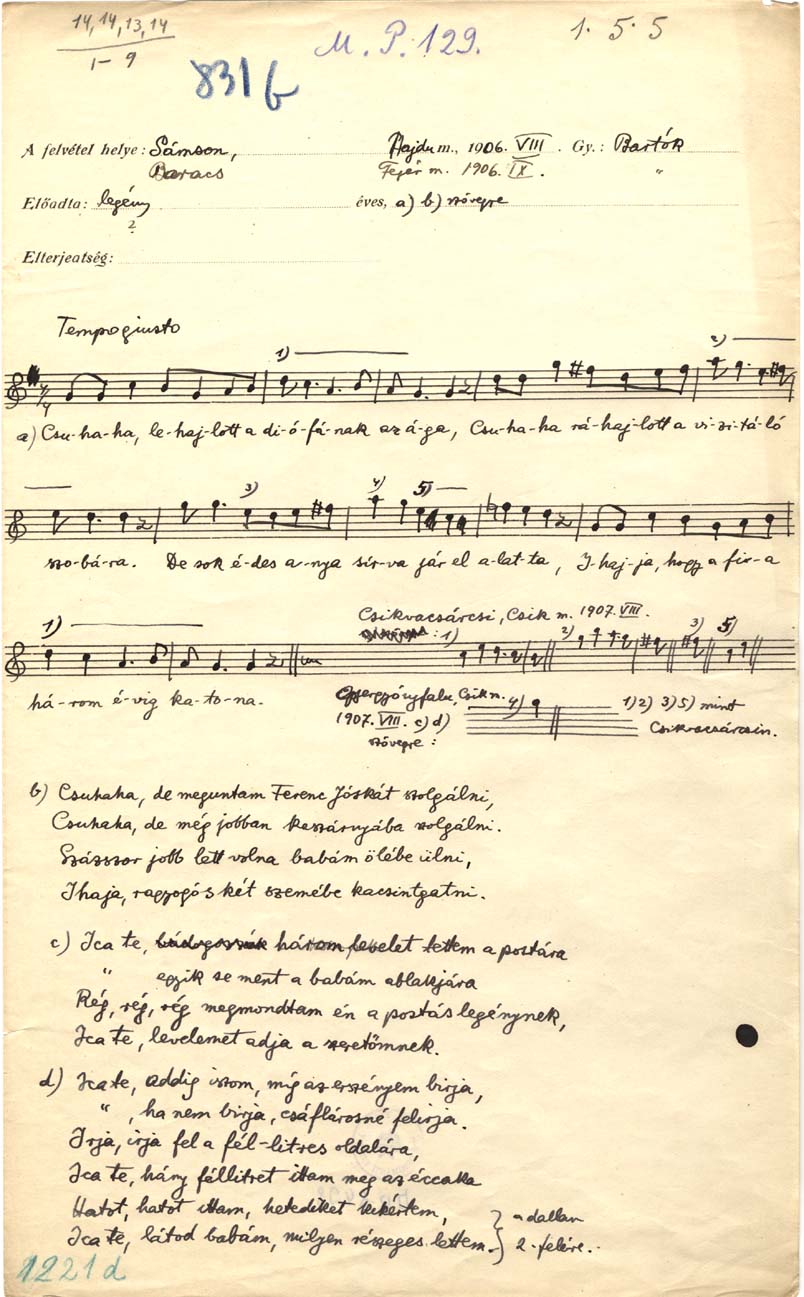 14, 14, 13, 14
1-9
M. P. 129.
1. 5. 5
831 b
A felvétel helye: Sámson, Hajdu m., 1906. VIII. Gy.: Bartók
Baracs Fejér m. 1906. IX. "
Előadta: legény éves, a) b) szövegre
?
Elterjeatség:
Tempo giusto
1)
2)
a) Csu-ha-ha, le-haj-lott a di-ó-fá-nak az á-ga, Csu-ha-ha rá-haj-lott a vi-zi-tá-ló
3)
4)
5)
szo-bá-ra. De sok é-des a-nya sir-va jár el a-lat-ta, I-haj-ja, hogy a fi-a
1)
Csikvacsárcsi, Csik m. 1907. VIII.
: 1) 2) 3) 5)
há-rom é-vig ka-to-na.
Csik m.
1907. VIII. c) d)
szövegre:
4)
1) 2) 3) 5) mint
Csikvacsárcsin.
b) Csuhaha, de meguntam Ferenc Jóskát szolgálni,
Csuhaha, de még jobban kaszárnyába szolgálni.
Százszor jobb lett volna babám ölébe ülni,
Ihaja, ragyogós két szemébe kacsintgatni.
c) Ica te, három levelet tettem a postára
" egyik se ment a babám ablakjára
Rég, rég, rég megmondtam én a postás legénynek,
Ica te, levelemet adja a szeretőmnek.
d) Ica te, addig iszom, míg az erszényem birja,
" , ha nem birja, csáflárosné felirja.
Irja, irja fel a fél-litres oldalára,
Ica te, hány féllitret ittam meg az éccaka
Hatot, hatot ittam, hetediket kikértem,
Ica te, látod babám, milyen részeges lettem.
a dallam
2. felére.
1221 d